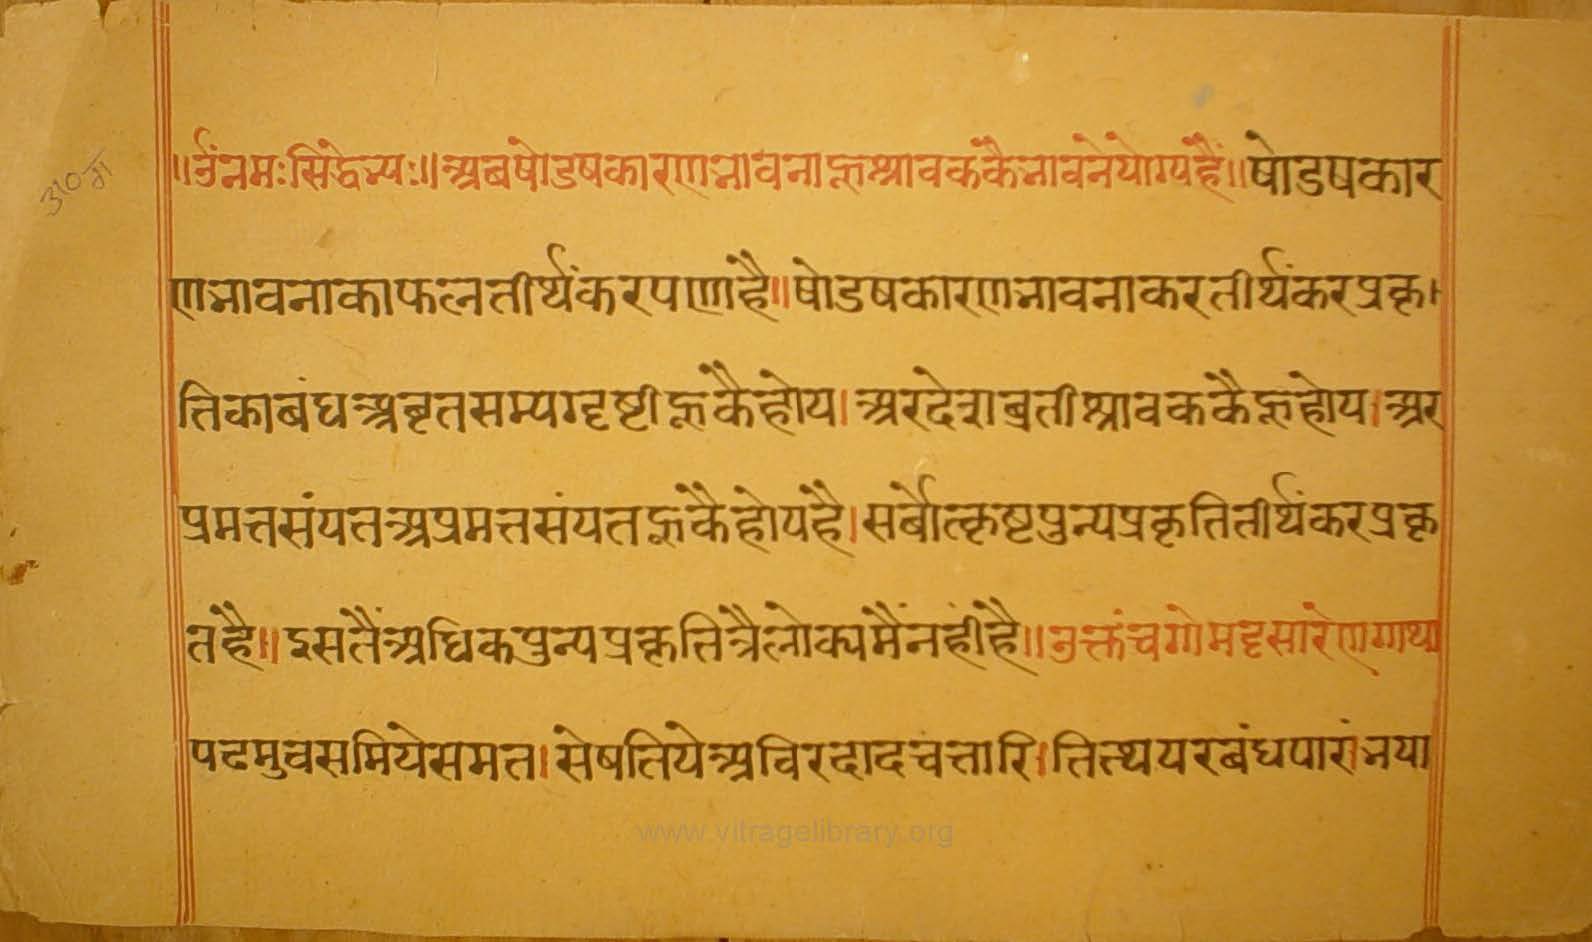 ॥ॐनमःसिद्धेभ्यः॥अबषोडषकारणभावनाहूश्रावककैभावनेयोग्यहैं॥षोडषकार
णभावनाकाफलतीर्थंकरपणाहै॥षोडषकारणभावनाकरतीर्थंकरप्रकृ
त्तिकाबंधअबृतसम्यग्दृष्टीहूकैहोय।अरदेशब्रतीश्रावककैहूहोय।अर
प्रमत्तसंयतअप्रमत्तसंयतहूकैहोयहै।सर्बोत्कृष्टपुन्यप्रकृतितीर्थंकरप्रकृ
तहै॥इसतैंअधिकपुन्यप्रकृत्तित्रैलोक्यमैंनहींहै॥उक्तंचगोमट्टसारेणगाथा
पढमुवसमियेसमत।सेषतियेअविरदादचत्तारि।तित्थयरबंधपारंभया
www.vitragelibrary.org